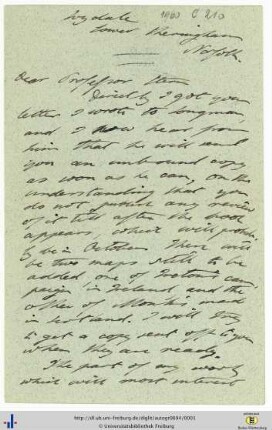 Ivydale
1900 C 210
Lower Sheringham
Norfolk.
Dear Professor Stern
Directly I got your
letter I wrote to Longman,
and I now hear from
him that he will send
you an unbound copy
as soon as he can, on the
understanding that you
do not publish any review
of it till after the book
appears, which will probably
be in October. There will
be two maps still to be
added one of Ireton's cam-
paign in Ireland and the
other of Monk's made
in Scotland. I will try
to get a copy sent off to you
when they are ready.
The part of my work
which will most interest
http://dl.ub.uni-freiburg.de/diglit/autogr0694/0001
© Universitätsbibliothek Freiburg